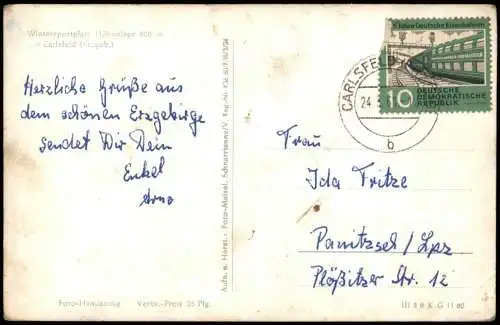 Wintersportplatz Höhenlage 800 m
Carlsfeld (Erzgeb.)
Herzliche Grüße aus
dem schönen Erzgebirge
sendet Dir Dein
Enkel
Arno
Foto-Handabzug Verbr.-Preis 26 Pfg.
Aufn. u. Herst.: Foto-Meixel, Schwarzenberg/E.
CARLSFELD
24.
b
Jahre Deutsche Eisenbahnen
10
DEUTSCHE
DEMOKRATISCHE
REPUBLIK
Frau
Ida Fritze
Panitzsch / Lpz
Plößitzer Str. 12
III 8 8 K G 11 60